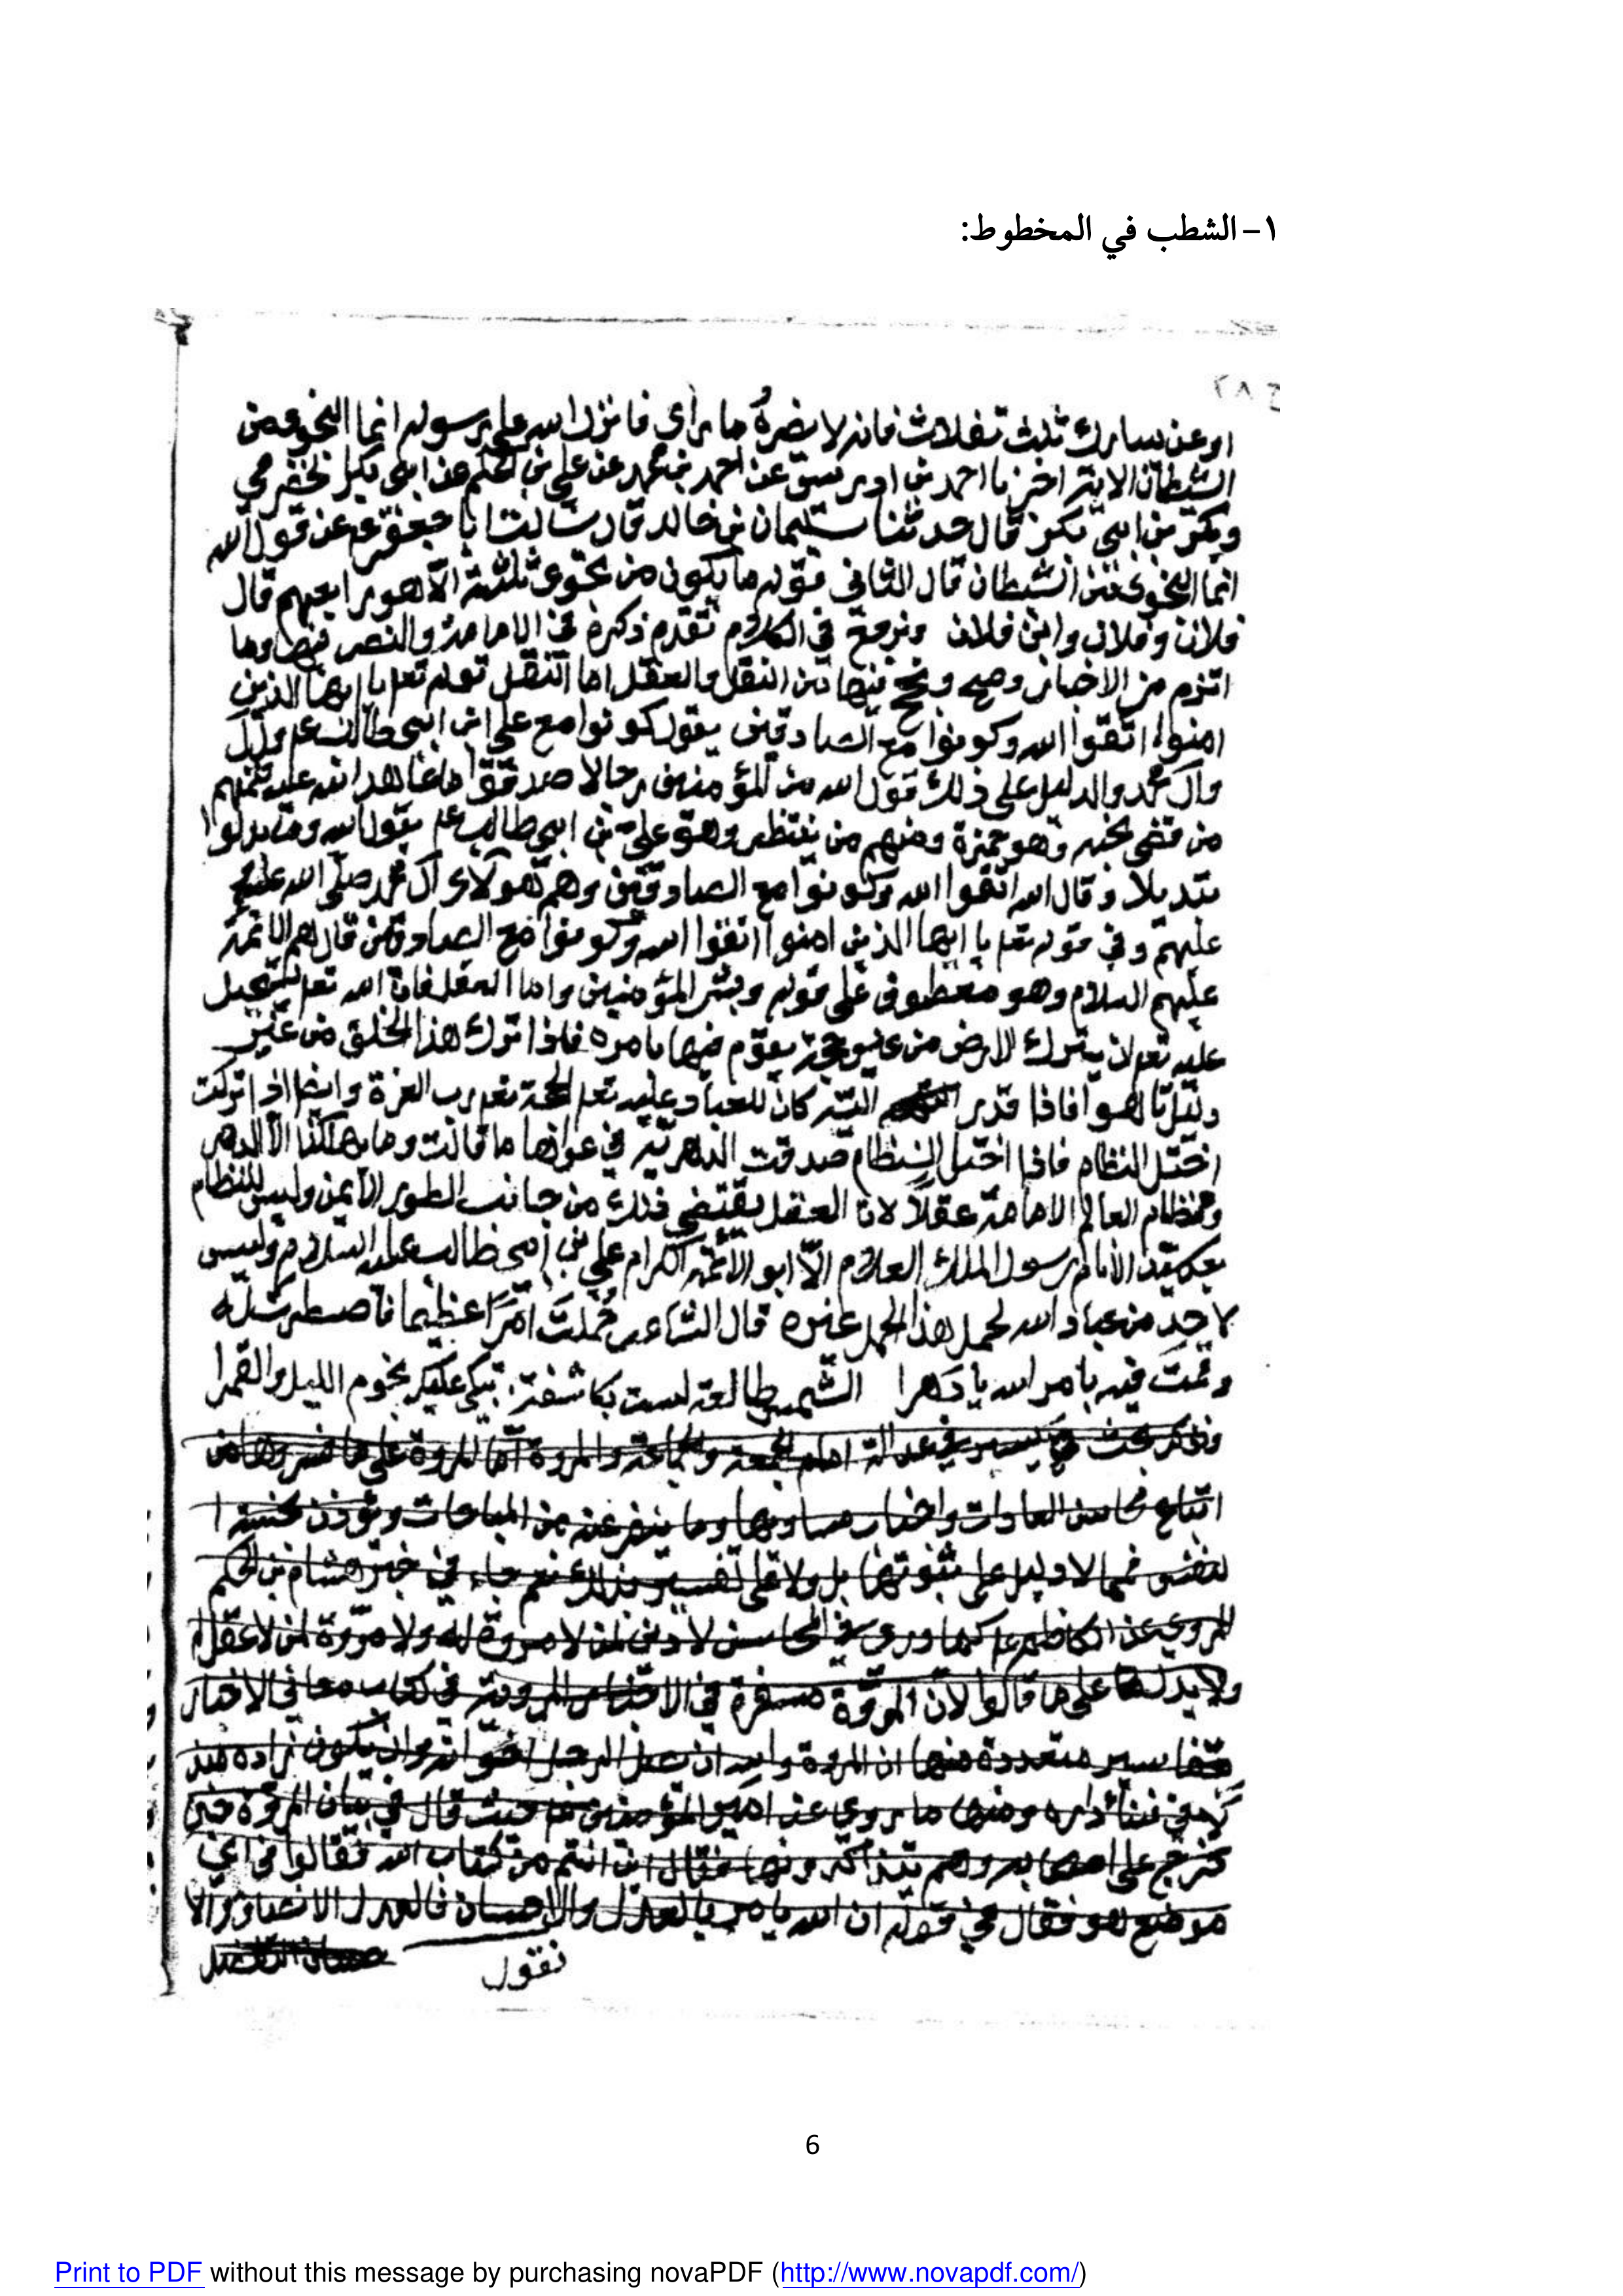 ١-الشطب في المخطوط:
ح ٢٨
او عن يسارك ثلث تفلات فانه لا يضره ما رأى فانزل الله على رسوله انما النجوى من
الشيطان الاية اخبرنا احمد بن ادريس عن احمد بن محمد عن علي بن الحكم عن ابي بكر الحضرمي
وبكر بن ابي بكر قال حدثنا سليمان بن خالد قال سالت ابا جعفر ع عن قول الله
انما النجوى من الشيطان قال الثاني قوله ما يكون من نجوى ثلثة الا هو رابعهم قال
فلان وفلان وابن فلان ونرجع في الكلام تقدم ذكره في الامامة والنص فيها وما
من الاخبار النقل والعقل اما النقل قوله تعا يا ايها الذين
امنوا اتقوا الله وكونوا مع الصادقين يقول كونوا مع علي ابن ابي طالب عم
وآل محمد والدليل على ذلك قول الله من المؤمنين رجالا صدقوا ما عاهدوا الله عليه فمنهم
من قضى نحبه وهو حمزة ومنهم من ينتظر وهو علي بن ابي طالب عم يقول الله وما بدلوا
تبديلا وقال الله اتقوا الله وكونوا مع الصادقين وهم هولاء آل محمد صلى الله عليه
عليهم وفي قوله تعا يا ايها الذين امنوا اتقوا الله وكونوا مع الصادقين قال هم الائمة
عليهم السلام وهو معطوف على قوله وبشر المؤمنين واما العقل فان الله تعا يستحيل
عليه تعا ان يترك الارض من غير حجة يقوم فيها بامره فاذا ترك هذا الخلق من غير
كان للعباد عليه تعا الحجة تعا رب العزة وايضا اذا تركت
اختل النظام فاذا اختل النظام صدقت الدهرية في ما قالت وما يهلكنا الا الدهر
ونظام العالم الامامة عقلا لان العقل يقتضي ذلك من جانب الطور الايمن وليس للنظام
بعد الانام رسول الملك العلام الا ابو الائمة الكرام علي بن ابي طالب عليه السلام وليس
لاحد من عباد الله لحمل هذا الحمل غيره قال الشاعر حملت امرا عظيما فاصطبرت له
وقمت فيه بامر الله يا الشمس طالعة ليست بكاسفة تبكي عليك نجوم الليل والقمرا
ونذكر بحث في عدالة امام الجمعة والجماعة والمروة اما المروة على ما فسروها من
اتباع محاسن العادات واجتناب مساويها وما ينفر عنه من المباحات وتؤذن بخسة ا
لنفس فما لا دليل على ثبوتها بل ولا على تفسير بذلك نعم جاء في خبر هشام بن الحكم
المروي عن الكاظم ع كما وري في المحاسن لا دين لمن لا مروة له ولا مروة لمن لا عقل له
ولا يدل لها على ما قالوا لان المروة مسفرة في الاخبار المروية في كتاب معاني الاخبار
بتفاسير متعددة منها ان المروة والله ان يضع الرجل خوانه وان يكون زاده
في فناء داره ومنها ما روي عن امير المؤمنين ع حيث قال في بيان المروة حين
خرج على اصحابه وهم يتذاكرونها فقال اين انتم من كتاب الله فقالوا في اي
موضع هو فقال في قوله ان الله يامر بالعدل والاحسان فالعدل الانصاف والا
حسان التفضل
نقول
6
Print to PDF without this message by purchasing novaPDF (http://www.novapdf.com/)